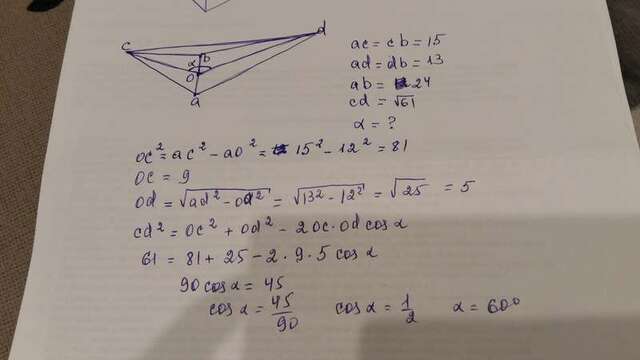 c
d
b
α
o
a
ac = cb = 15
ad = db = 13
ab = 24
cd = √61
α = ?
oc² = ac² - ao² = 15² - 12² = 81
oc = 9
od = √ad² - od² = √13² - 12² = √25 = 5
cd² = oc² + od² - 2oc·od cos α
61 = 81 + 25 - 2·9·5 cos α
90 cos α = 45
cos α = 45/90 cos α = 1/2 α = 60°